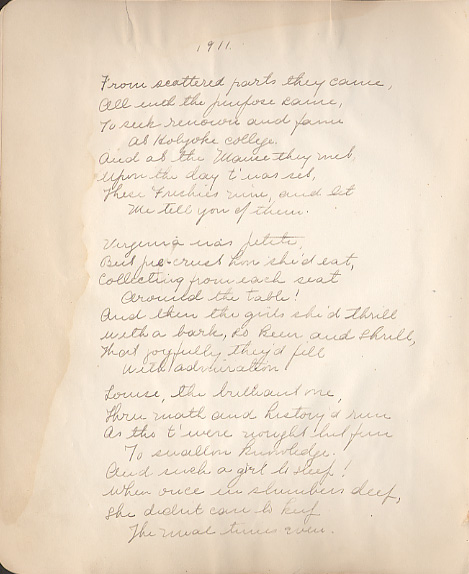 1911.
From scattered parts they came,
All with the purpose same,
To seek renown and fame
At Holyoke college.
And at the Manse they met
Upon the day t'was set,
These Freshies nine, and let
Me tell you of them.
Virginia was petite,
But pie-crust how she'd eat,
Collecting from each seat
Around the table!
And then the girls she'd thrill
With a bark, so keen and shrill,
That joyfully they'd fill
With admiration!
Louise, the brilliant one,
Thru math and history'd run
As tho t'were nought but fun
To swallow knowledge.
And such a girl to sleep!
When once in slumbers deep,
She didn't care to keep
The meal times even.